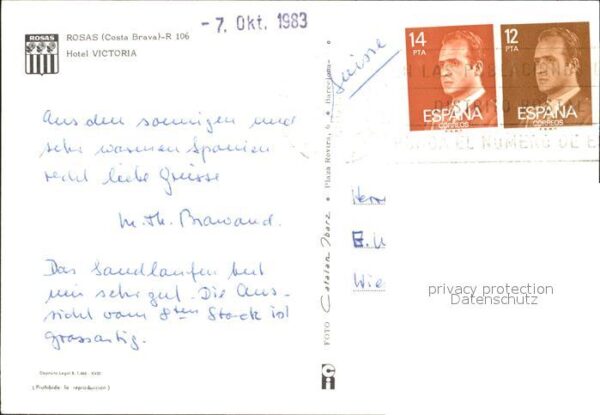 ROSAS
ROSAS (Costa Brava)-R 106
Hotel VICTORIA
-7. Okt. 1983
Aus dem sonnigen und
sehr warmen Spanien
recht liebe Grüsse
M. Th. Brawand.
Das Sandlaufen tut
mir sehr gut. Die Aus-
sicht vom 8ten Stock ist
grossartig.
(Prohibida la reproducción)
FOTO Catalan Ibarz - Plaza Rovira, 6 - Barcelona-
Suisse
14
PTA
ESPAÑA
CORREOS
12
PTA
ESPAÑA
CORREOS
DISTRITO
EL NUMERO DE
Herr
E.
privacy protection
Datenschutz